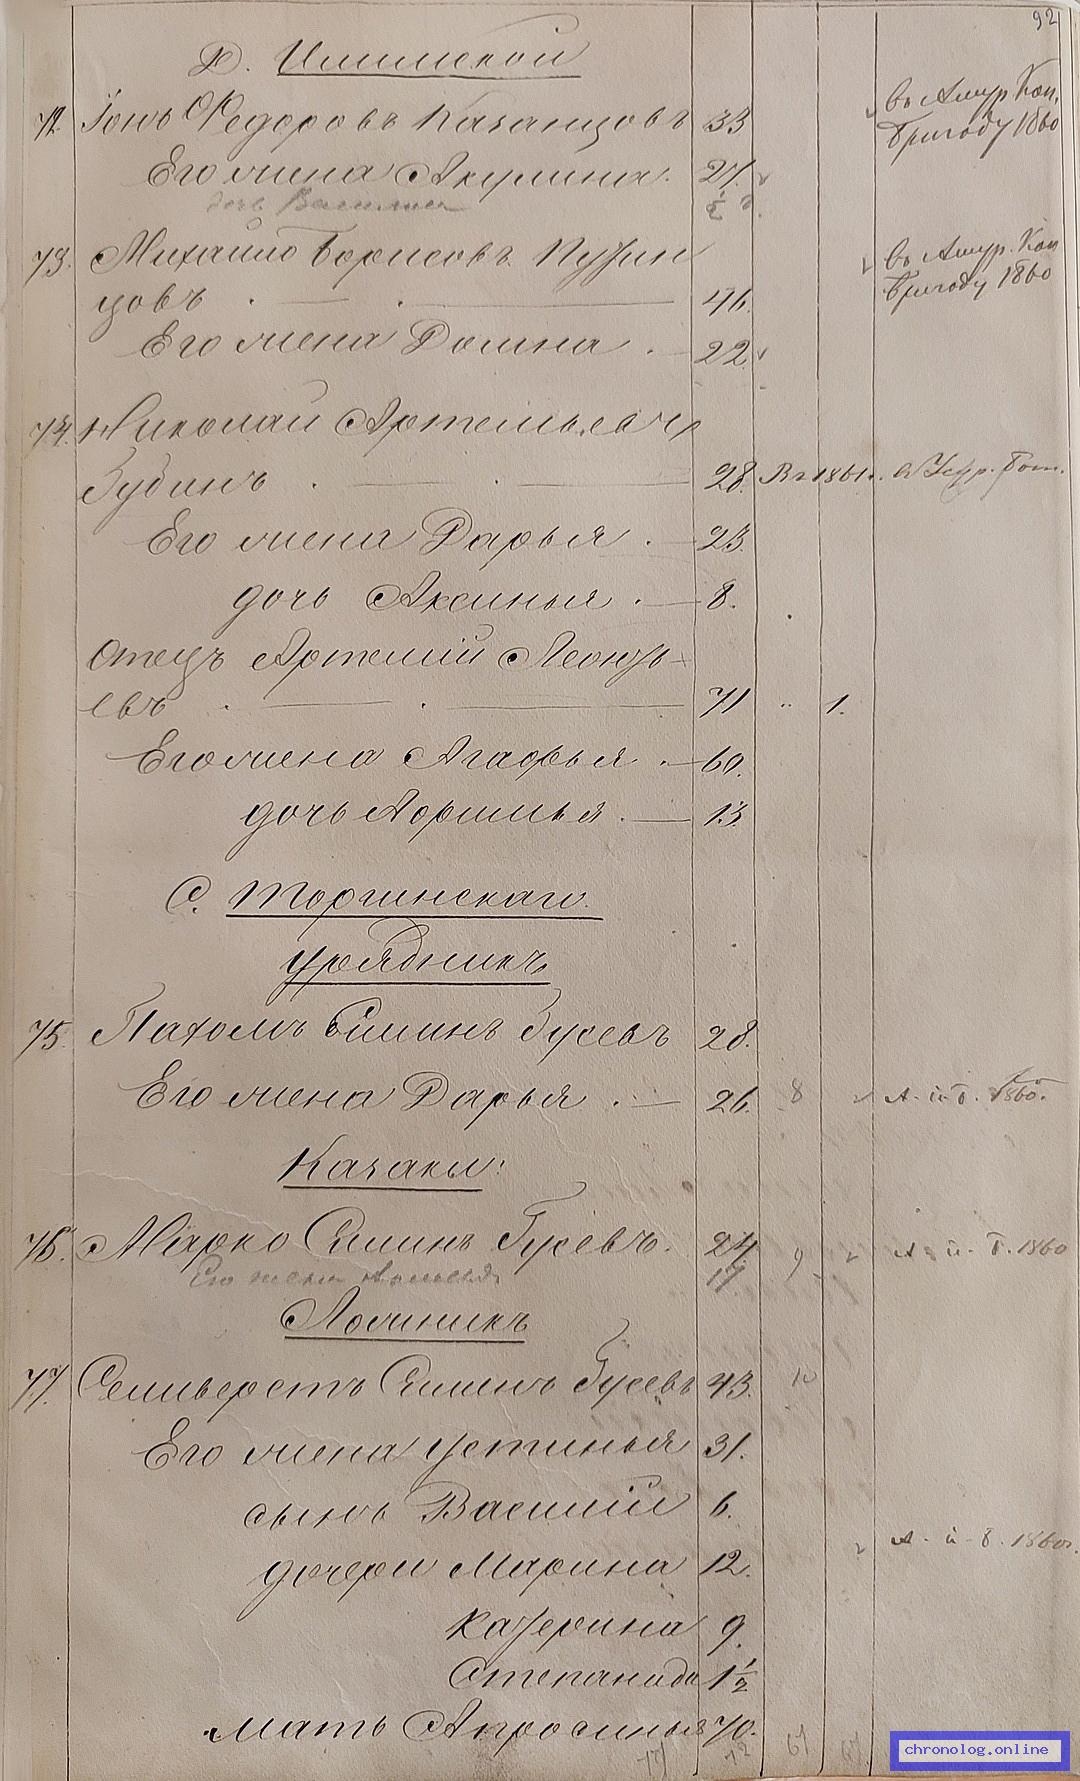 92
Д. Илимской
72. Іонъ Федоровъ Казанцовъ 33 въ Амур. Кон.
бригаду 1860
Его жена Акулина. 27.
дочь Василиса
73. Михайло Борисовъ Путин въ Амур. Кон
цовъ 46. бригаду 1860
Его жена Домна 22
74. Николай Артемьевъ
Зубинъ 28. Въ 1861.
Его жена Дарья 23.
дочь Аксинья 8.
Отецъ Артемій Леонть-
евъ 71 " 1.
Его жена Агафья 60.
дочь 13.
С. Торгинскаго.
урядникъ
75. Пахомъ Силинъ Гусевъ 28.
Его жена Дарья 26. 8 А. п. б. 1860.
Казаки:
76. Марко Силинъ Гусевъ. 24 9 А. п. б. 1860
Его жена 19
77. Селиверстъ Силинъ Гусевъ 43. 10
Его жена Устинья 31.
сынъ Василій 6.
А. п. б. 1860.
дочери Марина 12.
Катерина 9.
Степанида 1 1/2
мать Апросинья 70.
chronolog.online